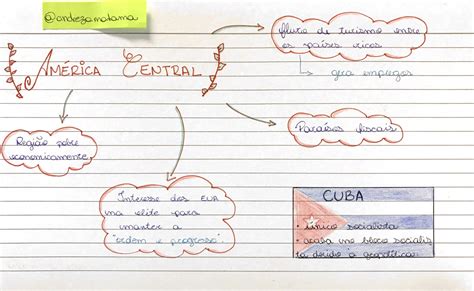 @andrezamatama
América Central
fluxo de turismo entre
os países ricos
↳ gera empregos
Região pobre
economicamente
Paraísos fiscais
Interesse dos EUA
na elite para
manter a
"ordem e progresso".
CUBA
• único socialista
• acaba no bloco socialis
ta devido a geopolítica.